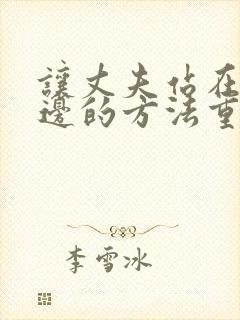 讓丈夫站在
邊的方法重
李雪冰